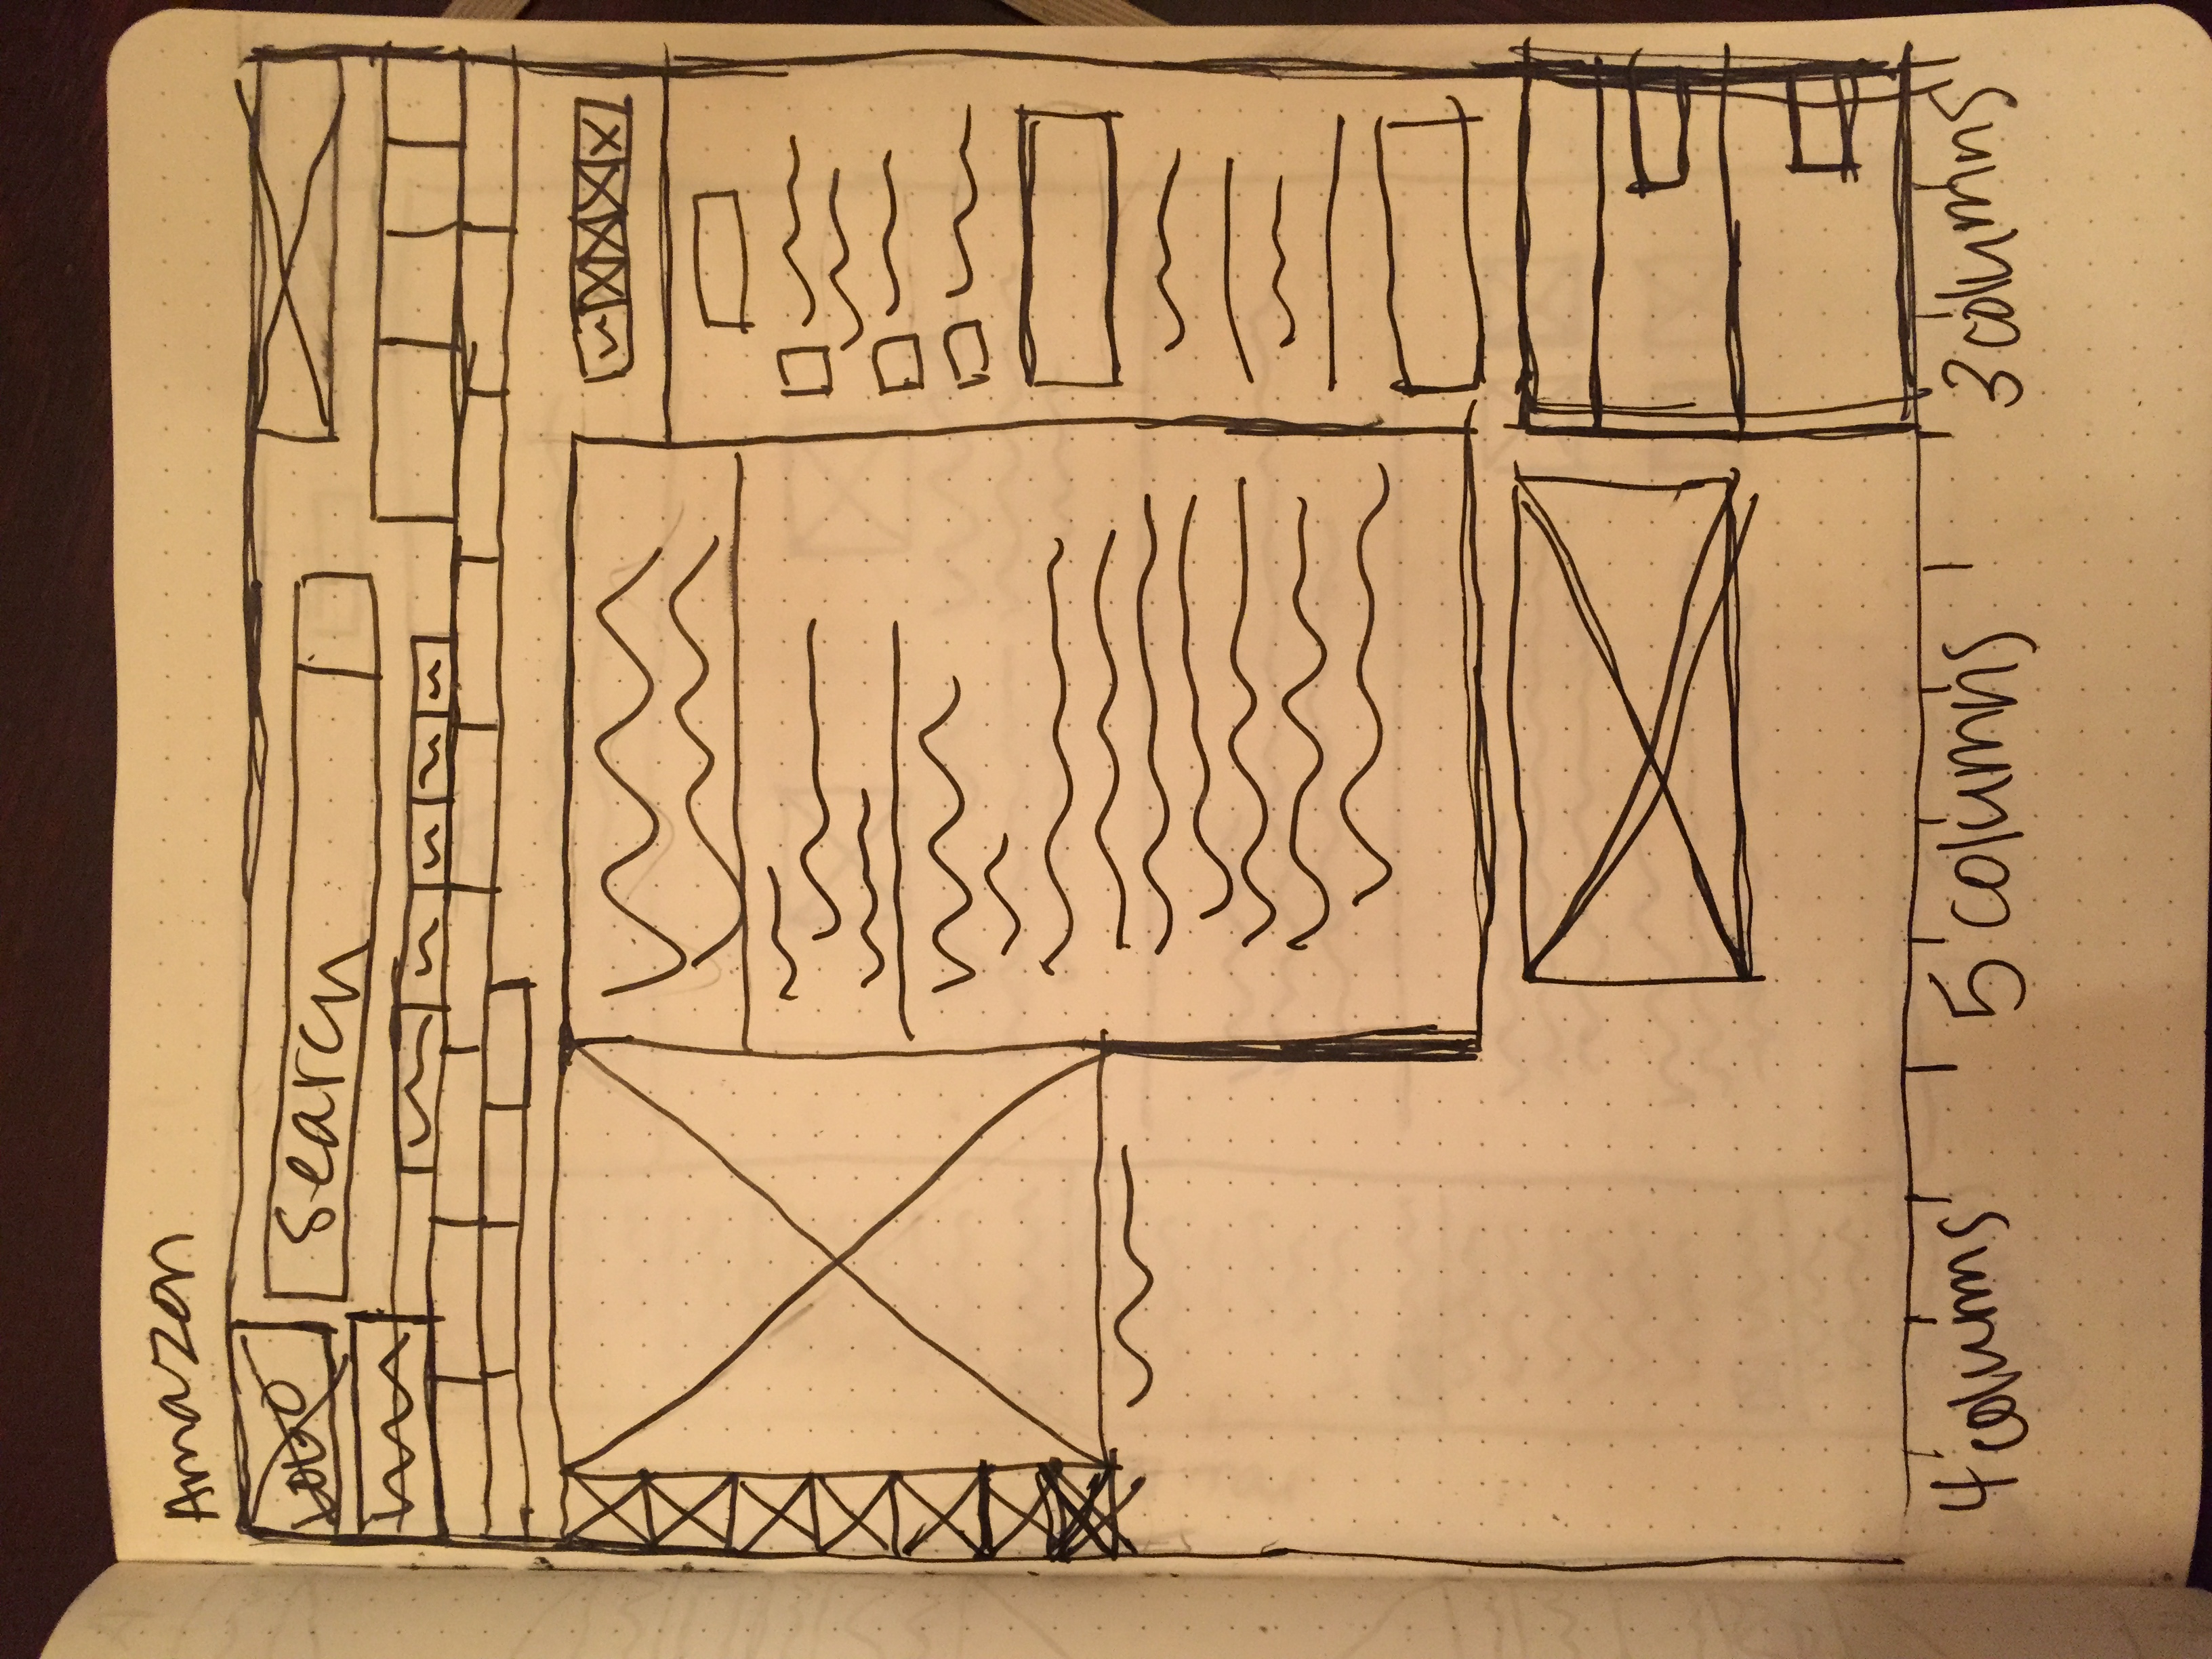 Amazon
LOGO
Search
4 columns 5 columns 3 columns